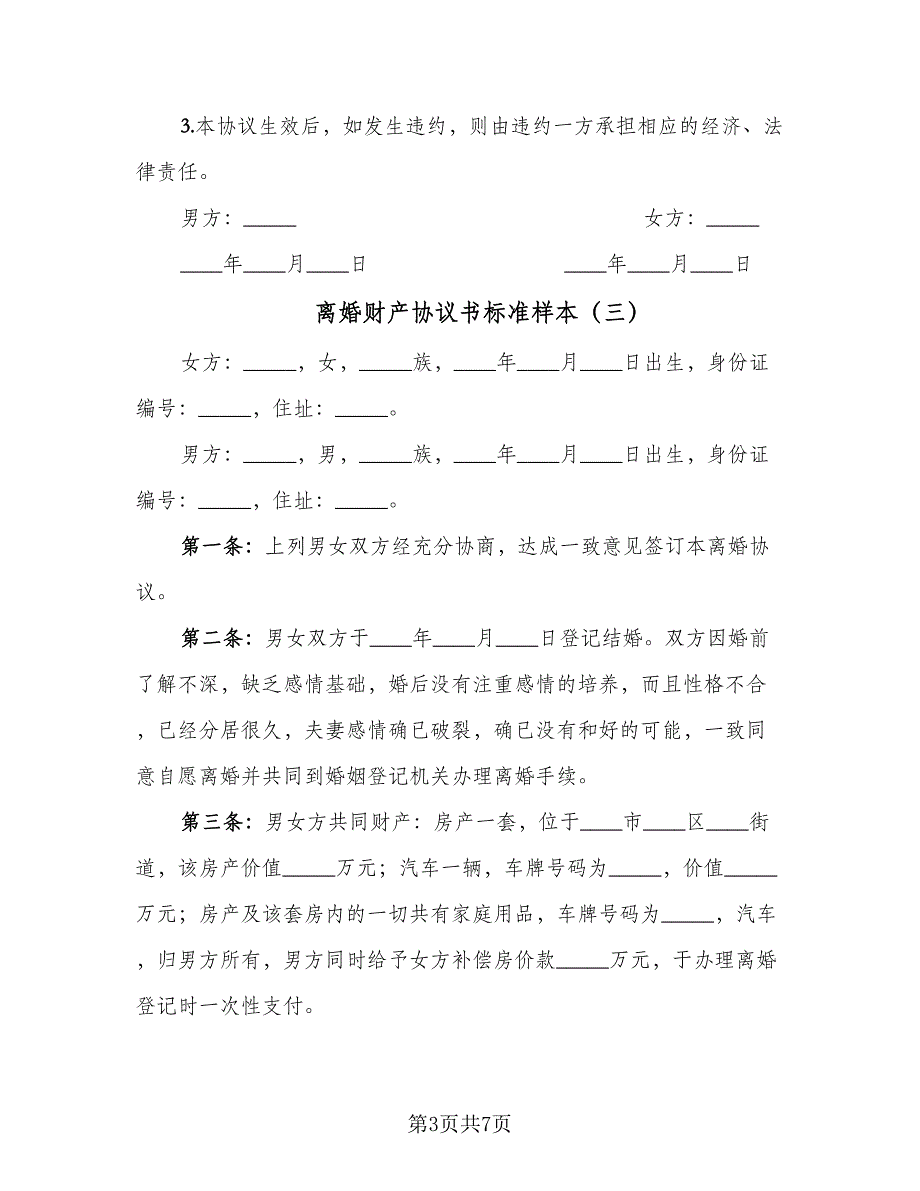 3.本协议生效后，如发生违约，则由违约一方承担相应的经济、法
律责任。
男方：_____ 女方：_____
____年____月____日 ____年____月____日
离婚财产协议书标准样本（三）
女方：_____，女，_____族，____年____月____日出生，身份证
编号：_____，住址：_____。
男方：_____，男，_____族，____年____月____日出生，身份证
编号：_____，住址：_____。
第一条：上列男女双方经充分协商，达成一致意见签订本离婚协
议。
第二条：男女双方于____年____月____日登记结婚。双方因婚前
了解不深，缺乏感情基础，婚后没有注重感情的培养，而且性格不合
，已经分居很久，夫妻感情确已破裂，确已没有和好的可能，一致同
意自愿离婚并共同到婚姻登记机关办理离婚手续。
第三条：男女方共同财产：房产一套，位于____市____区____街
道，该房产价值_____万元；汽车一辆，车牌号码为_____，价值_____
万元；房产及该套房内的一切共有家庭用品，车牌号码为_____，汽车
，归男方所有，男方同时给予女方补偿房价款_____万元，于办理离婚
登记时一次性支付。
第3页共7页